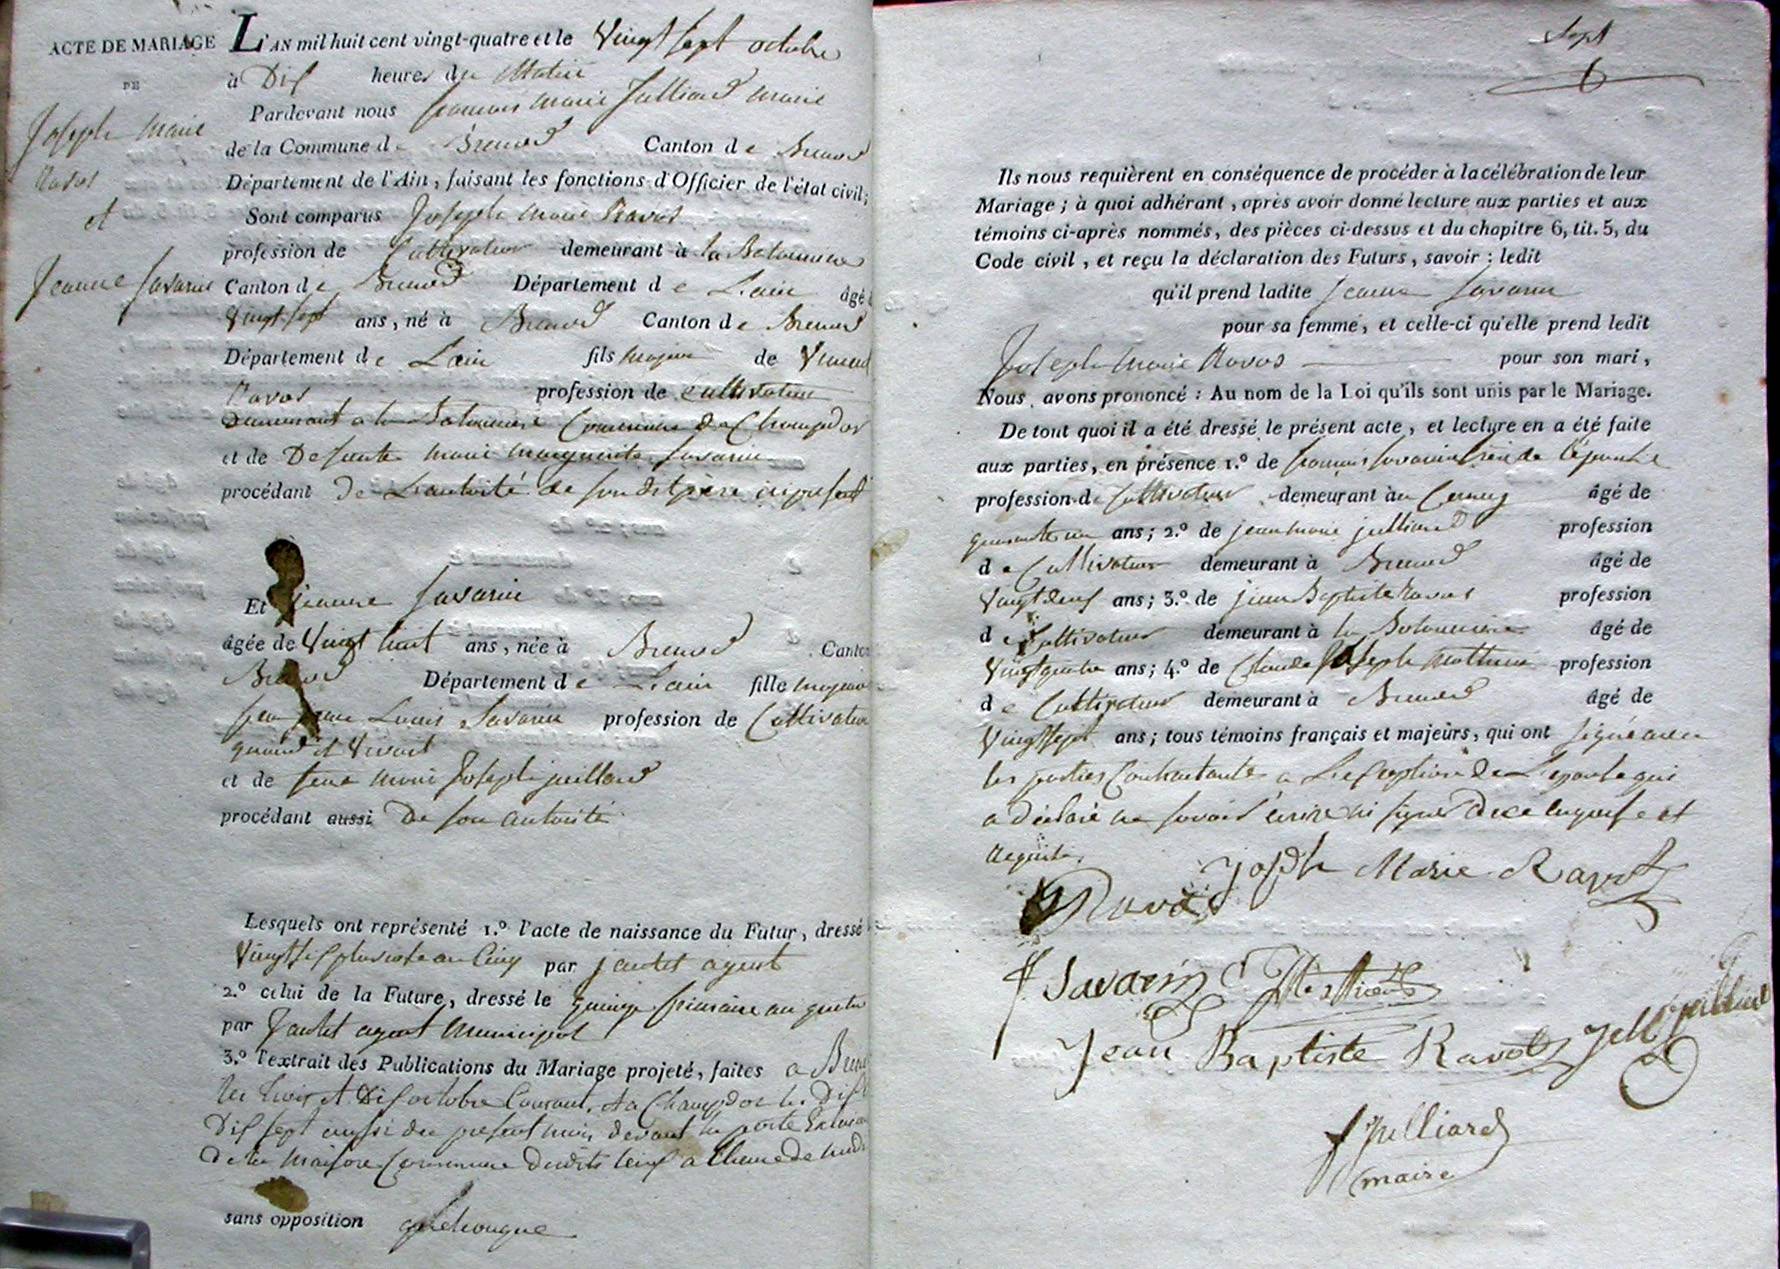 ACTE DE MARIAGE
DE
Joseph Marie
Ravot
et
Jeanne Savarin
L'AN mil huit cent vingt-quatre et le vingt sept octobre
à Dix heures du Matin
Pardevant nous françois marie Julliard maire
de la Commune de Brenod Canton de Brenod
Département de l'Ain, faisant les fonctions d'Officier de l'état civil;
Sont comparus Joseph marie Ravot
profession de Cultivateur demeurant à la
Canton de Brenod Département de L'ain âgé
Vingt sept ans, né à Brenod Canton de Brenod
Département de L'ain fils majeur de Vincent
Ravot profession de cultivateur
demeurant a la Commune de Champdor
et de Defunte marie marguerite Savarin
procédant De L'autorité de son dit père ici présent
Et Jeanne Savarin
âgée de Vingt huit ans, née à Brenod Canton
Brenod Département de L'ain fille majeure
feu Louis Savarin profession de Cultivateur
quand il vivait
et de feue marie Josephe juillard
procédant aussi De son autorité
Lesquels ont représenté 1.º l'acte de naissance du Futur, dressé
Vingt six pluviose an Cinq par jantet agent
2.º celui de la Future, dressé le quinze frimaire an quatre
par Jantet agent Municipal
3.º l'extrait des Publications du Mariage projeté, faites a Brenod
Les trois et Dix octobre Courant, et a Champdor les Dix
Dix sept aussi du present mois devant la porte
De la maison Commune desdits lieux a L'heure de midi
sans opposition quelconque
Sept
Ils nous requièrent en conséquence de procéder à la célébration de leur
Mariage; à quoi adhérant, après avoir donné lecture aux parties et aux
témoins ci-après nommés, des pièces ci-dessus et du chapitre 6, tit. 5, du
Code civil, et reçu la déclaration des Futurs, savoir: ledit
qu'il prend ladite Jeanne Savarin
pour sa femme, et celle-ci qu'elle prend ledit
Joseph Marie Ravot pour son mari,
Nous avons prononcé: Au nom de la Loi qu'ils sont unis par le Mariage.
De tout quoi il a été dressé le présent acte, et lecture en a été faite
aux parties, en présence 1.º de françois Savarin frère de l'épouse
profession de Cultivateur demeurant à âgé de
quarante un ans; 2.º de jean marie julliard profession
de Cultivateur demeurant à Brenod âgé de
Vingt neuf ans; 3.º de jean Baptiste Ravot profession
de Cultivateur demeurant à la âgé de
Vingt quatre ans; 4.º de Claude Joseph profession
de Cultivateur demeurant à Brenod âgé de
Vingt sept ans; tous témoins français et majeurs, qui ont signé avec
les parties Contractantes a L'exception de L'epouse qui
a déclaré ne savoir écrire ni signer de ce enquise et
requise.
Joseph Marie Ravot
Ravot
f Savarin
Jean Baptiste Ravot
JM Julliard
f Julliard
maire